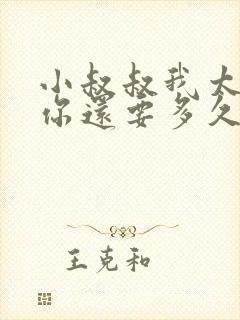 小叔叔我太
你還要多久
王克和